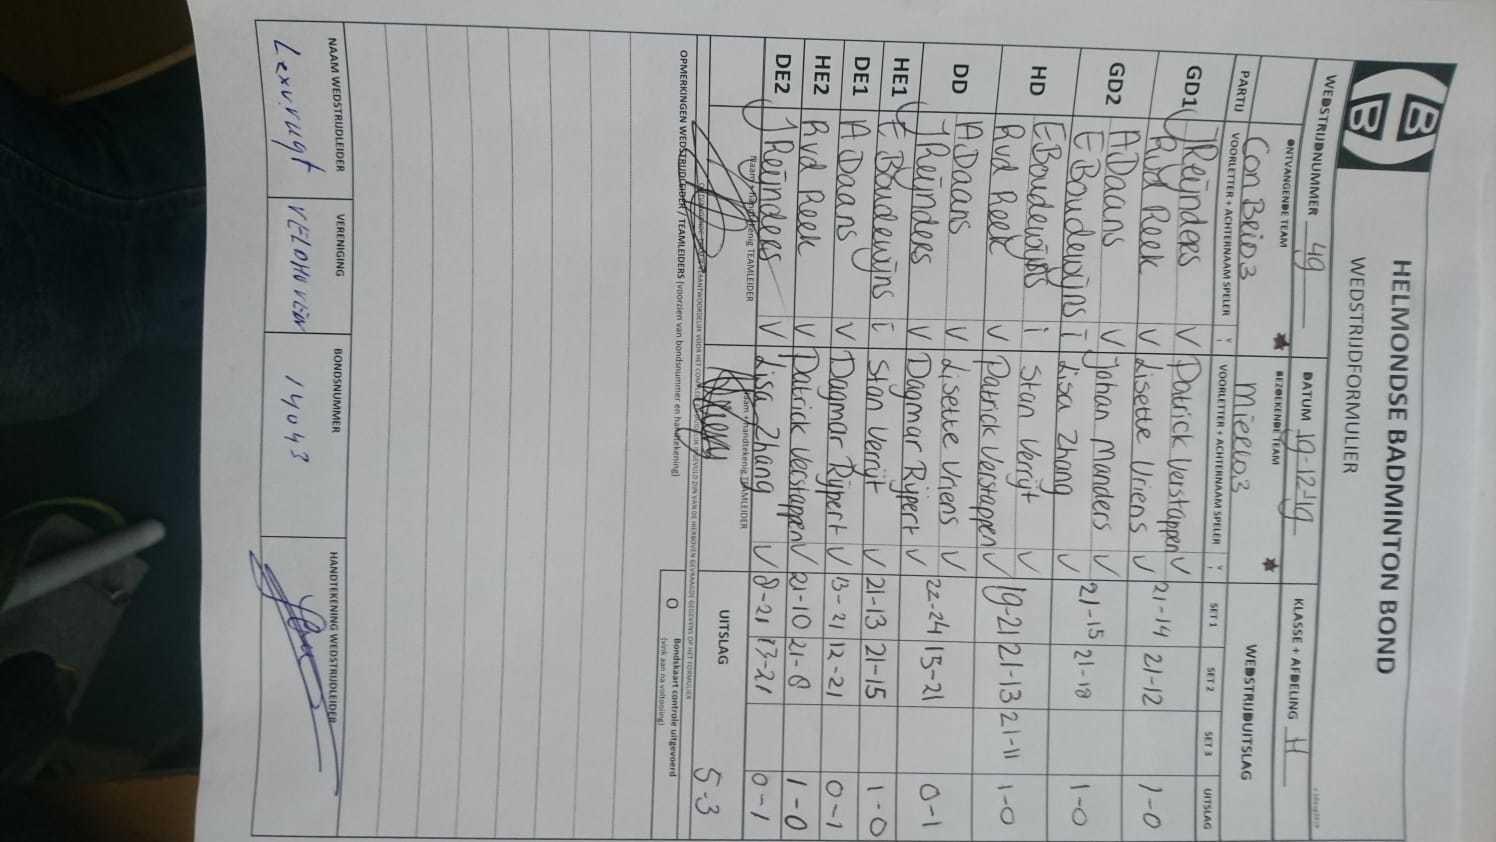 HBB
HELMONDSE BADMINTON BOND
WEDSTRIJDFORMULIER
WEDSTRIJDNUMMER 49 DATUM 19-12-19 KLASSE + AFDELING H
ONTVANGENDE TEAM BEZOEKENDE TEAM
Con Brio 3 Mierlo 3 WEDSTRIJDUITSLAG
PARTIJ VOORLETTER + ACHTERNAAM SPELER V VOORLETTER + ACHTERNAAM SPELER V SET 1 SET 2 SET 3 UITSLAG
GD1 J Reijnders V Patrick Verstappen V 21-14 21-12 1-0
R vd Reek V Lisette Vriens V
GD2 A Daans V Johan Manders V 21-15 21-18 1-0
E Boudewijns i Lisa Zhang V
HD E Boudewijns i Stan Verrijt V 19-21 21-13 21-11 1-0
R vd Reek V Patrick Verstappen V
DD A Daans V Lisette Vriens V 22-24 15-21 0-1
J Reijnders V Dagmar Rijpert V
HE1 E Boudewijns i Stan Verrijt V 21-13 21-15 1-0
DE1 A Daans V Dagmar Rijpert V 13-21 12-21 0-1
HE2 R vd Reek V Patrick Verstappen V 21-10 21-8 1-0
DE2 J Reijnders V Lisa Zhang V 8-21 13-21 0-1
Naam + handtekenig TEAMLEIDER Naam + handtekenig TEAMLEIDER UITSLAG 5-3
OPMERKINGEN WEDSTRIJDLEIDER / TEAMLEIDERS (voorzien van bondsnummer en handtekening)
O Bondskaart controle uitgevoerd
(vink aan na voltooiing)
NAAM WEDSTRIJDLEIDER VERENIGING BONDSNUMMER HANDTEKENING WEDSTRIJDLEIDER
Lex v. vugt VELDHOVEN 14043